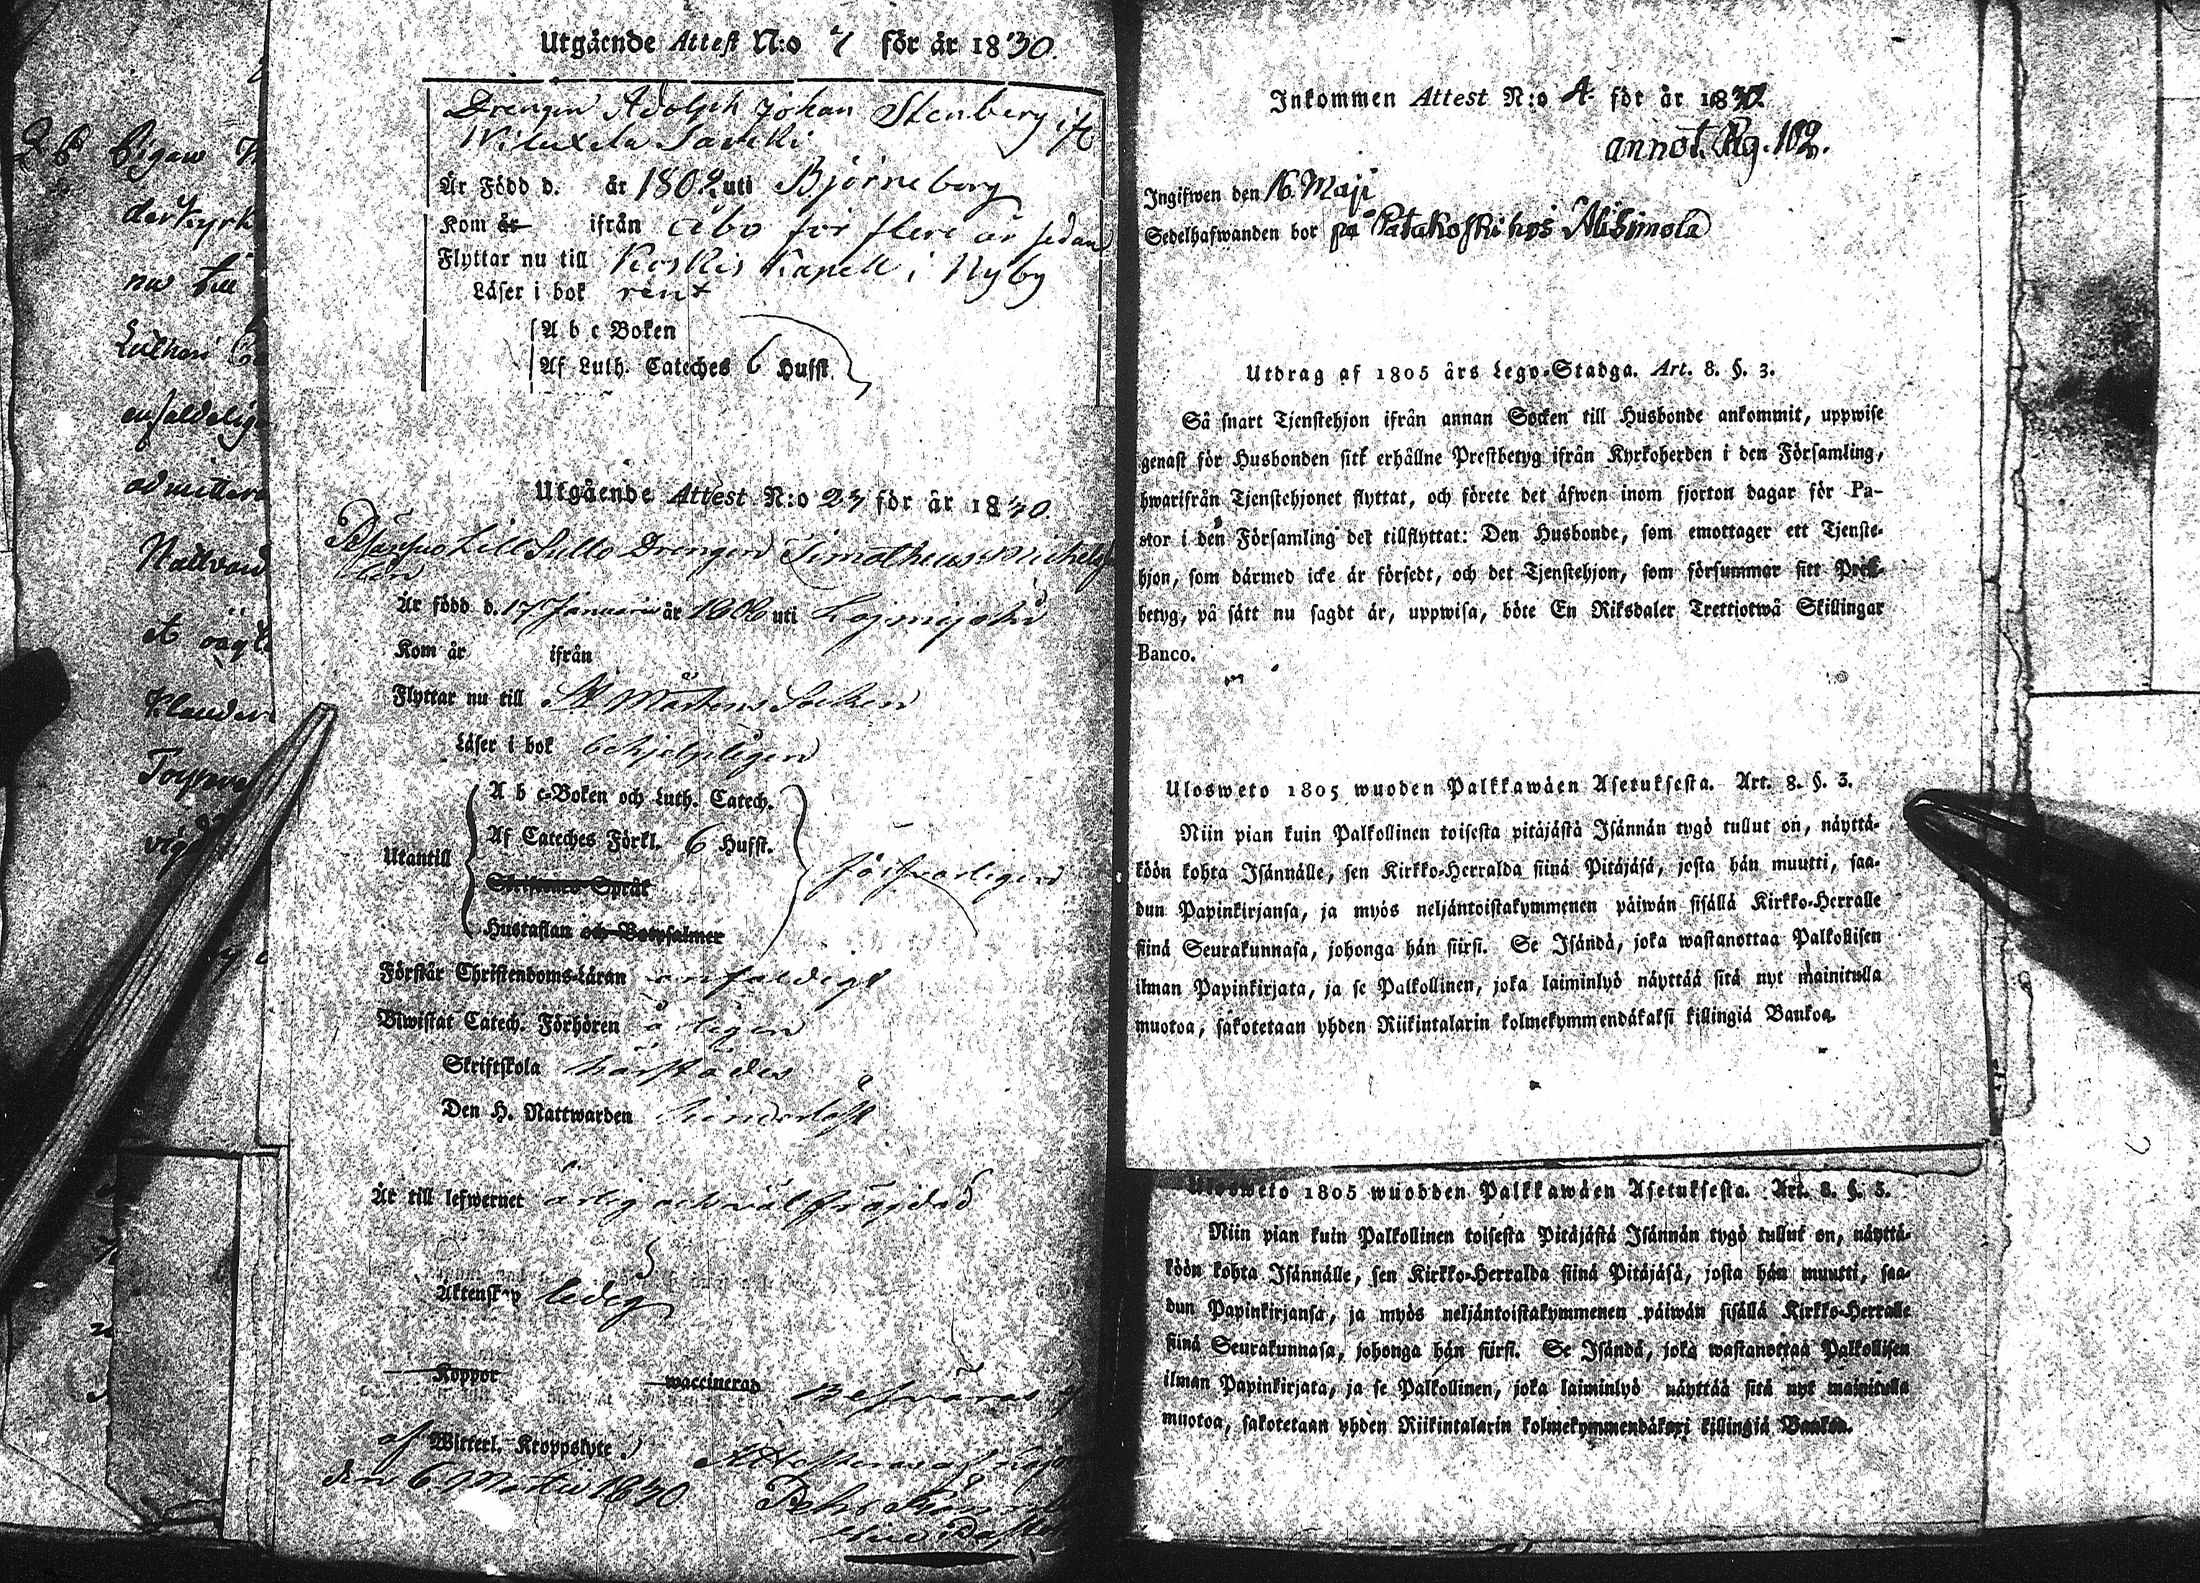 Utgående Attest N:o 7 för år 1830.
Drengen Adolph Johan Stenberg ifr
Är Född d. år 1802 uti Björneborg
Kom år ifrån Åbo för flere år sedan
Flyttar nu till Koskis Kapell i Nyby
Läser i bok rent
A b c Boken
Af Luth. Cateches 6 Hufst.
Utgående Attest N:o 23 för år 1830.
Lill Sullo Drengen Timotheus Michels
son
Är född d. 17 Januarii år 1806 uti Loimijoki
Kom år ifrån
Flyttar nu till St Mårtens Socken
Läser i bok behjelpligen
Utantill
A b c-Boken och Luth. Catech.
Af Cateches Förkl. 6 Hufst.
Skriftenes Språk
Hustaflan och Botpsalmer
försvarligen
Förstår Christendoms-Läran enfaldigt
Biwistat Catech. Förhören årligen
Skriftskola härstädes
Den H. Nattwarden
Är till lefwernet ärlig och välfrägdad
Äktenskap ledig
Koppor waccinerad Besväras ej
af Witterl. Kroppslyte.
den 6 Martii 1830
Inkommen Attest N:o 4 för år 1830
annot. Pag. 102.
Ingifwen den 16 Maji
Sedelhafwanden bor på Patakoski hos Alisimola
Utdrag af 1805 års Lego-Stadga. Art. 8. §. 3.
Så snart Tjenstehjon ifrån annan Socken till Husbonde ankommit, uppwise
genast för Husbonden sitt erhållne Prestbetyg ifrån Kyrkoherden i den Församling,
hwarifrån Tjenstehjonet flyttat, och förete det äfwen inom fjorton dagar för Pa-
stor i den Församling det tillflyttat: Den Husbonde, som emottager ett Tjenste-
hjon, som därmed icke är försedt, och det Tjenstehjon, som försummar sitt Prest-
betyg, på sätt nu sagdt är, uppwisa, böte En Riksdaler Trettiotwå Skillingar
Banco.
Ulosweto 1805 wuoden Palkkawäen Asetuksesta. Art. 8. §. 3.
Niin pian kuin Palkollinen toisesta pitäjästä Isännän tygö tullut on, näyttä-
köön kohta Isännälle, sen Kirkko-Herralda siinä Pitäjäsä, josta hän muutti, saa-
dun Papinkirjansa, ja myös neljäntoistakymmenen päiwän sisällä Kirkko-Herralle
siinä Seurakunnasa, johonga hän siirsi. Se Isändä, joka wastanottaa Palkollisen
ilman Papinkirjata, ja se Palkollinen, joka laiminlyö näyttää sitä nyt mainitulla
muotoa, sakotetaan yhden Riikintalarin kolmekymmendäkaksi killingiä Bankoa.
Ulosweto 1805 wuodden Palkkawäen Asetuksesta. Art. 8. §. 3.
Niin pian kuin Palkollinen toisesta Pitäjästä Isännän tygö tullut on, näyttä-
köön kohta Isännälle, sen Kirkko-Herralda siinä Pitäjäsä, josta hän muutti, saa-
dun Papinkirjansa, ja myös neljäntoistakymmenen päiwän sisällä Kirkko-Herralle
siinä Seurakunnasa, johonga hän siirsi. Se Isändä, joka wastanottaa Palkollisen
ilman Papinkirjata, ja se Palkollinen, joka laiminlyö näyttää sitä nyt mainitulla
muotoa, sakotetaan yhden Riikintalarin kolmekymmendäkaxi killingiä Bankoa.